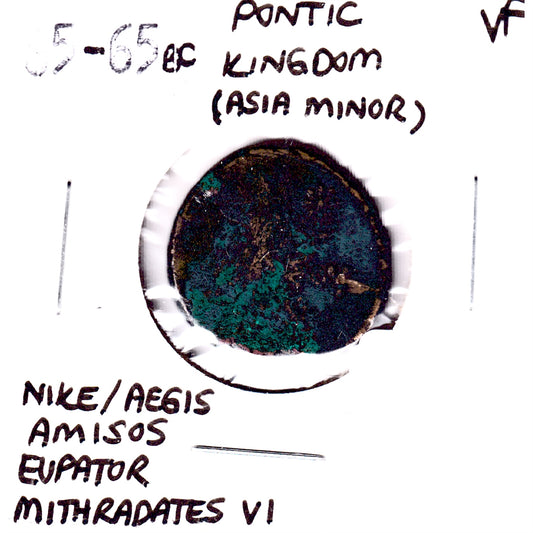 PONTIC
VF
-65 BC
KINGDOM
(ASIA MINOR)
NIKE/AEGIS
AMISOS
EUPATOR
MITHRADATES VI